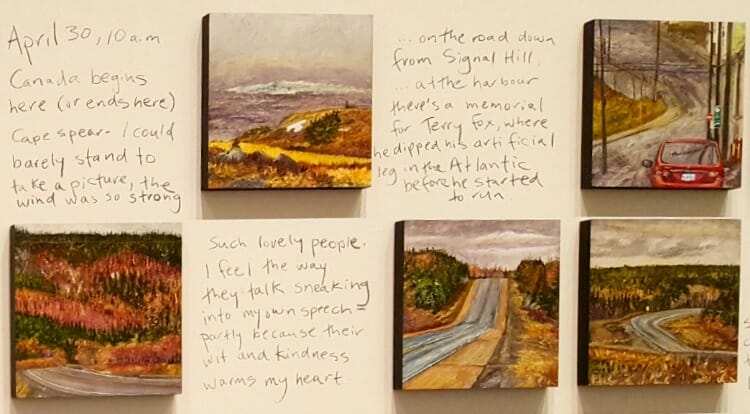 April 30, 10 a.m
Canada begins
here (or ends here)
Cape Spear - I could
barely stand to
take a picture, the
wind was so strong
... on the road down
from Signal Hill.
... at the harbour
there's a memorial
for Terry Fox, where
he dipped his artificial
leg in the Atlantic
before he started
to run.
Such lovely people.
I feel the way
they talk sneaking
into my own speech -
partly because their
wit and kindness
warms my heart.